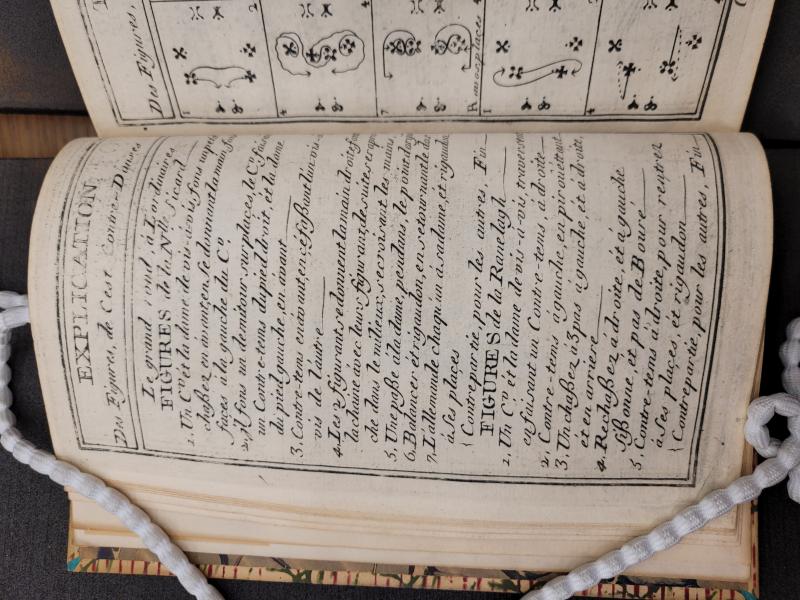 Des Figures,
1
2
4
7
R
mesplaces
1
2
4
EXPLICATION
Des Figures, de C'est Contre-Danses
Le grand rond à L'ordinaires
FIGURES de la Nlle Sicard
1. Un Cer et la dame de vis-à-vis, fons un pas
chaßez en avançen, se donnant la main, fon
faces à la gauche du Cer
2. Il fons un demi tour, sur places, le Cer faisant
un Contre-tems du pied droit, et la dame
du pied gauche, en avant
3. Contre-tems en avant, en cé foßant l'un vis-
vis de l'autre
4. Les 2 figurants, se donnent la main droite, font
la chaine avec leurs figurant, de suites
che dans le milieux, se croisant les mains
5. Une paße à la dame, pendans, le point d'orgue
6. Balancer, et rigaudon, en se tournant le dos
7. L'allemande chaqu'un à sa dame, et rigaudon
à Ses places
Contre partie, pour les autres, Fin
FIGURES de la Ranelagh
1. Un Cer et la dame de vis-à-vis, traversent
en faisant un Contre-tems, à droite
2. Contre-tems à gauche, en pirouettant
3. Un chaßez à 3 pas à gauche, et à droite,
et en arriere
4. Rechaßez à droite, et à gauche
sißonne, et pas de Bouré
5. Contre-tems à droite, pour rentrez
à Ses places, et rigaudon
Contre partie, pour les autres, Fin